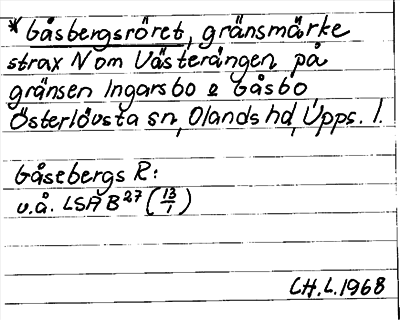 *Gåsbergsröret, gränsmärke
strax N om Västerängen på
gränsen Ingarsbo o Gåsbo
Österlövsta sn, Olands hd, Upps. l.
Gåsebergs R:
u.å. LSA B²⁷ (13/1)
CH.L.1968